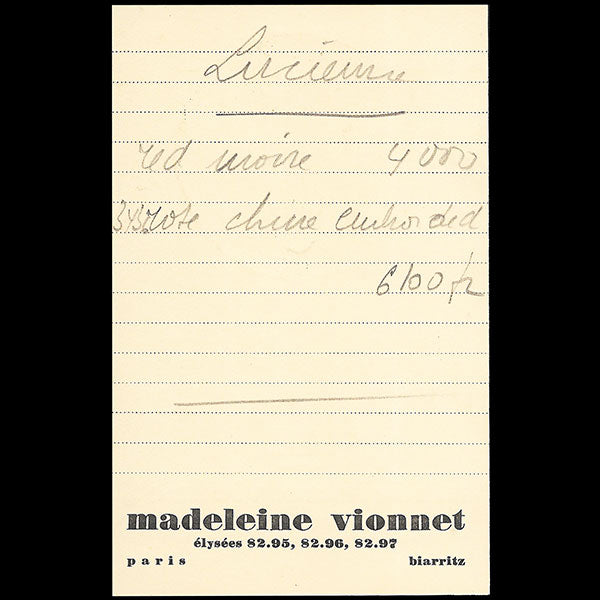 Lucienne
red moire 4000
343 rose chine embroided
6100 fr
madeleine vionnet
élysées 82.95, 82.96, 82.97
paris biarritz